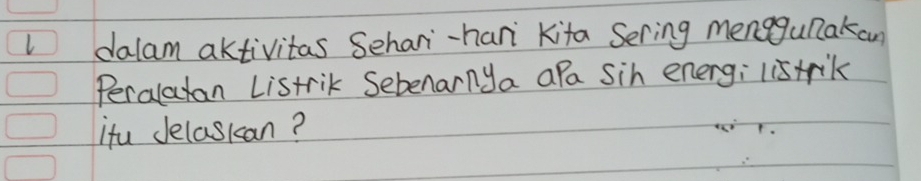 1 dalam aktivitas Sehari-hari Kita Sering menggunakan
Peralatan Listrik Sebenarnya aPa sih energi listrik
itu Jelaskan?